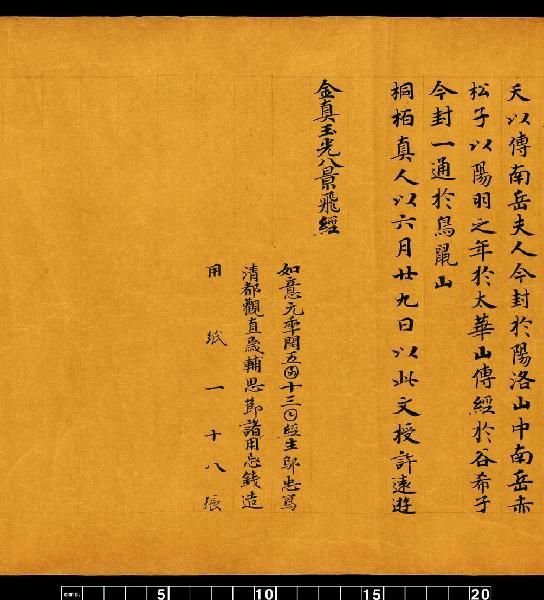 天以傳南岳夫人今封於陽洛山中南岳赤
松子以陽羽之年於太華山傳經於谷希子
今封一通於鳥鼠山
桐栢真人以六月廿九日以此文授許遠遊
金真玉光八景飛經
如意元年閏五𡆠十三〇經生鄔忠篤
清都觀直歲輔思節諸用忌錢造
用紙一十八張